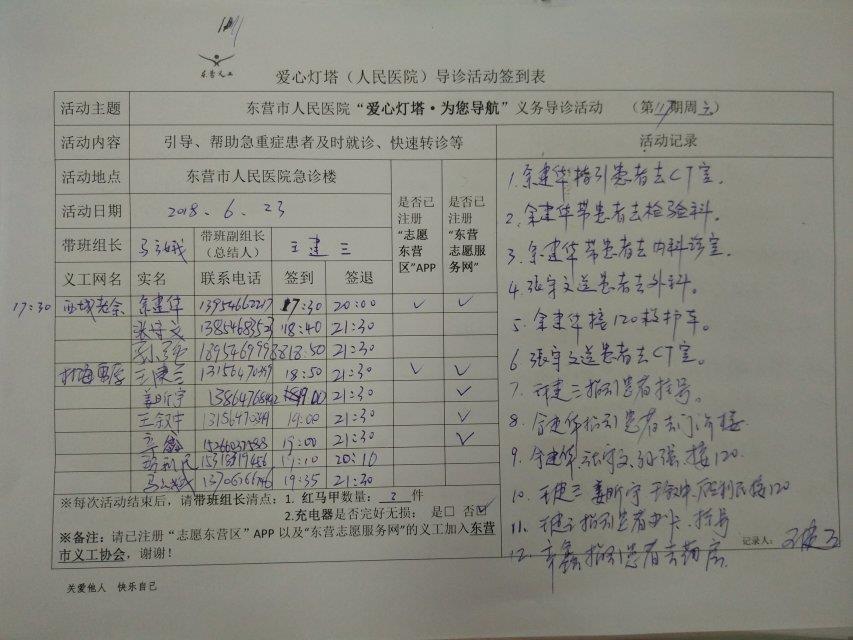 东营义工
爱心灯塔（人民医院）导诊活动签到表
活动主题 东营市人民医院“爱心灯塔·为您导航”义务导诊活动 （第 期周 ）
活动内容 引导、帮助急重症患者及时就诊、快速转诊等 活动记录
活动地点 东营市人民医院急诊楼 是否已注册“志愿东营区”APP 是否已注册“东营志愿服务网”
活动日期 2018.6.23
带班组长 带班副组长（总结人） 王建三
义工网名 实名 联系电话 签到 签退
17:30 西域老余 余建华 17:30 20:00 ✓ ✓
张守文 18:40 21:30
18:50 21:30
王建三 13156470459 18:50 21:30 ✓ ✓
姜昕宇 19:00 21:30 ✓
王叙中 19:00 21:30 ✓
辛鑫 19:00 21:30 ✓
19:10 20:10
19:35 21:30
1.余建华指引患者去CT室。
2.余建华带患者去检验科。
3.余建华带患者去内科诊室。
4.张守文送患者去外科。
5.余建华接120救护车。
6.张守文送患者去CT室。
7.王建三指引患者挂号。
8.余建华指引患者去门诊楼
9.余建华.张守文.孙强.接120
10.王建三 姜昕宇 接120
11.王建三指引患者办卡.挂号
12.辛鑫指引患者去药房.
记录人： 王建三
※每次活动结束后，请带班组长清点：1. 红马甲数量： 2 件
2.充电器是否完好无损： 是□ 否☑
※备注：请已注册“志愿东营区”APP 以及“东营志愿服务网”的义工加入东营
市义工协会，谢谢！
关爱他人 快乐自己